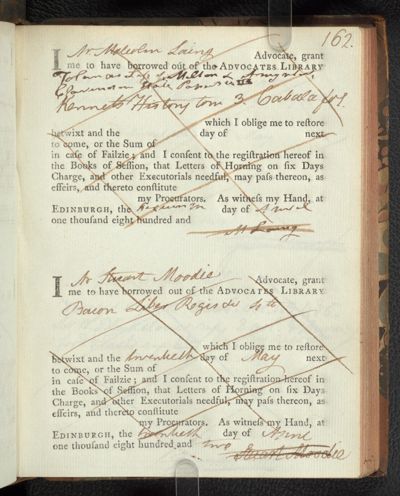 162.
I Mr Malcolm Laing Advocate, grant
me to have borrowed out of the ADVOCATES LIBRARY
Toland's Life of Milton &
Clarendon State Papers
Kennett's History tom 3 Cabala fol.
which I oblige me to reſtore
betwixt and the day of next
to come, or the Sum of
in caſe of Failzie; and I conſent to the regiſtration hereof in
the Books of Seſſion, that Letters of Horning on ſix Days
Charge, and other Executorials needful, may paſs thereon, as
effeirs, and thereto conſtitute
my Procurators. As witneſs my Hand, at
EDINBURGH, the day of April
one thouſand eight hundred and
M Laing
I Mr Stuart Moodie Advocate, grant
me to have borrowed out of the ADVOCATES LIBRARY
Bacon Liber Regis 4to
which I oblige me to reſtore
betwixt and the twentieth day of May next
to come, or the Sum of
in caſe of Failzie; and I conſent to the regiſtration hereof in
the Books of Seſſion, that Letters of Horning on ſix Days
Charge, and other Executorials needful, may paſs thereon, as
effeirs, and thereto conſtitute
my Procurators. As witneſs my Hand, at
EDINBURGH, the twentieth day of April
one thouſand eight hundred and two
Stuart Moodie